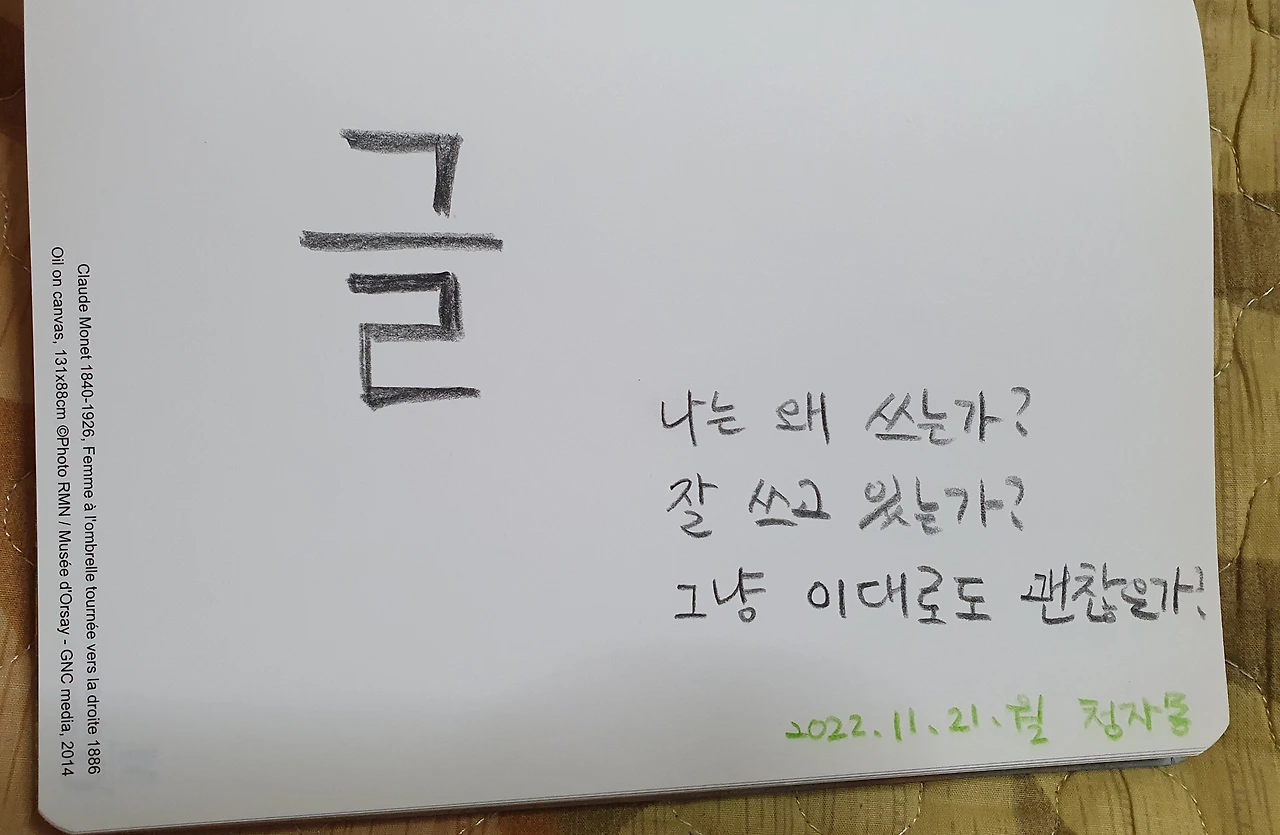 글
나는 왜 쓰는가?
잘 쓰고 있는가?
그냥 이대로도 괜찮은가?
2022.11.21.월 청자동
Claude Monet 1840-1926, Femme à l'ombrelle tournée vers la droite 1886
Oil on canvas, 131x88cm ©Photo RMN / Musée d'Orsay - GNC media, 2014